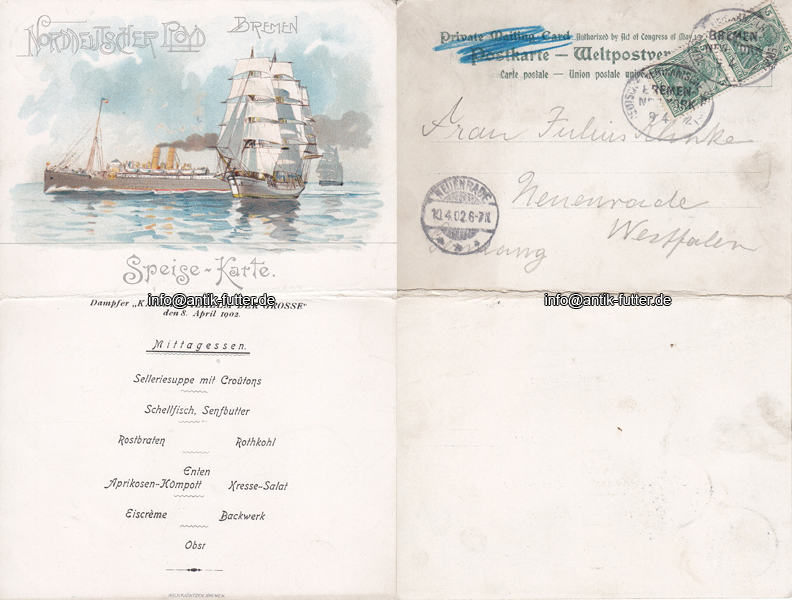 NORDDEUTSCHER LLOYD BREMEN
Speise-Karte.
info@antik-futter.de
Dampfer „K DER GROSSE"
den 8. April 1902.
Mittagessen.
Selleriesuppe mit Croûtons
Schellfisch, Senfbutter
Rostbraten Rothkohl
Enten
Aprikosen-Kompott Kresse-Salat
Eiscrème Backwerk
Obst
Private Mailing Card Authorized by Act of Congress of May 19
Postkarte — Weltpostver
Carte postale — Union postale univer
BREMEN-
NEW YORK
BREMEN-
NEW YORK
9 4 02
5
Frau Julius Klinke
Neuenrade
Westfalen
NEUENRADE
10.4.02.6-7N.
info@antik-futter.de